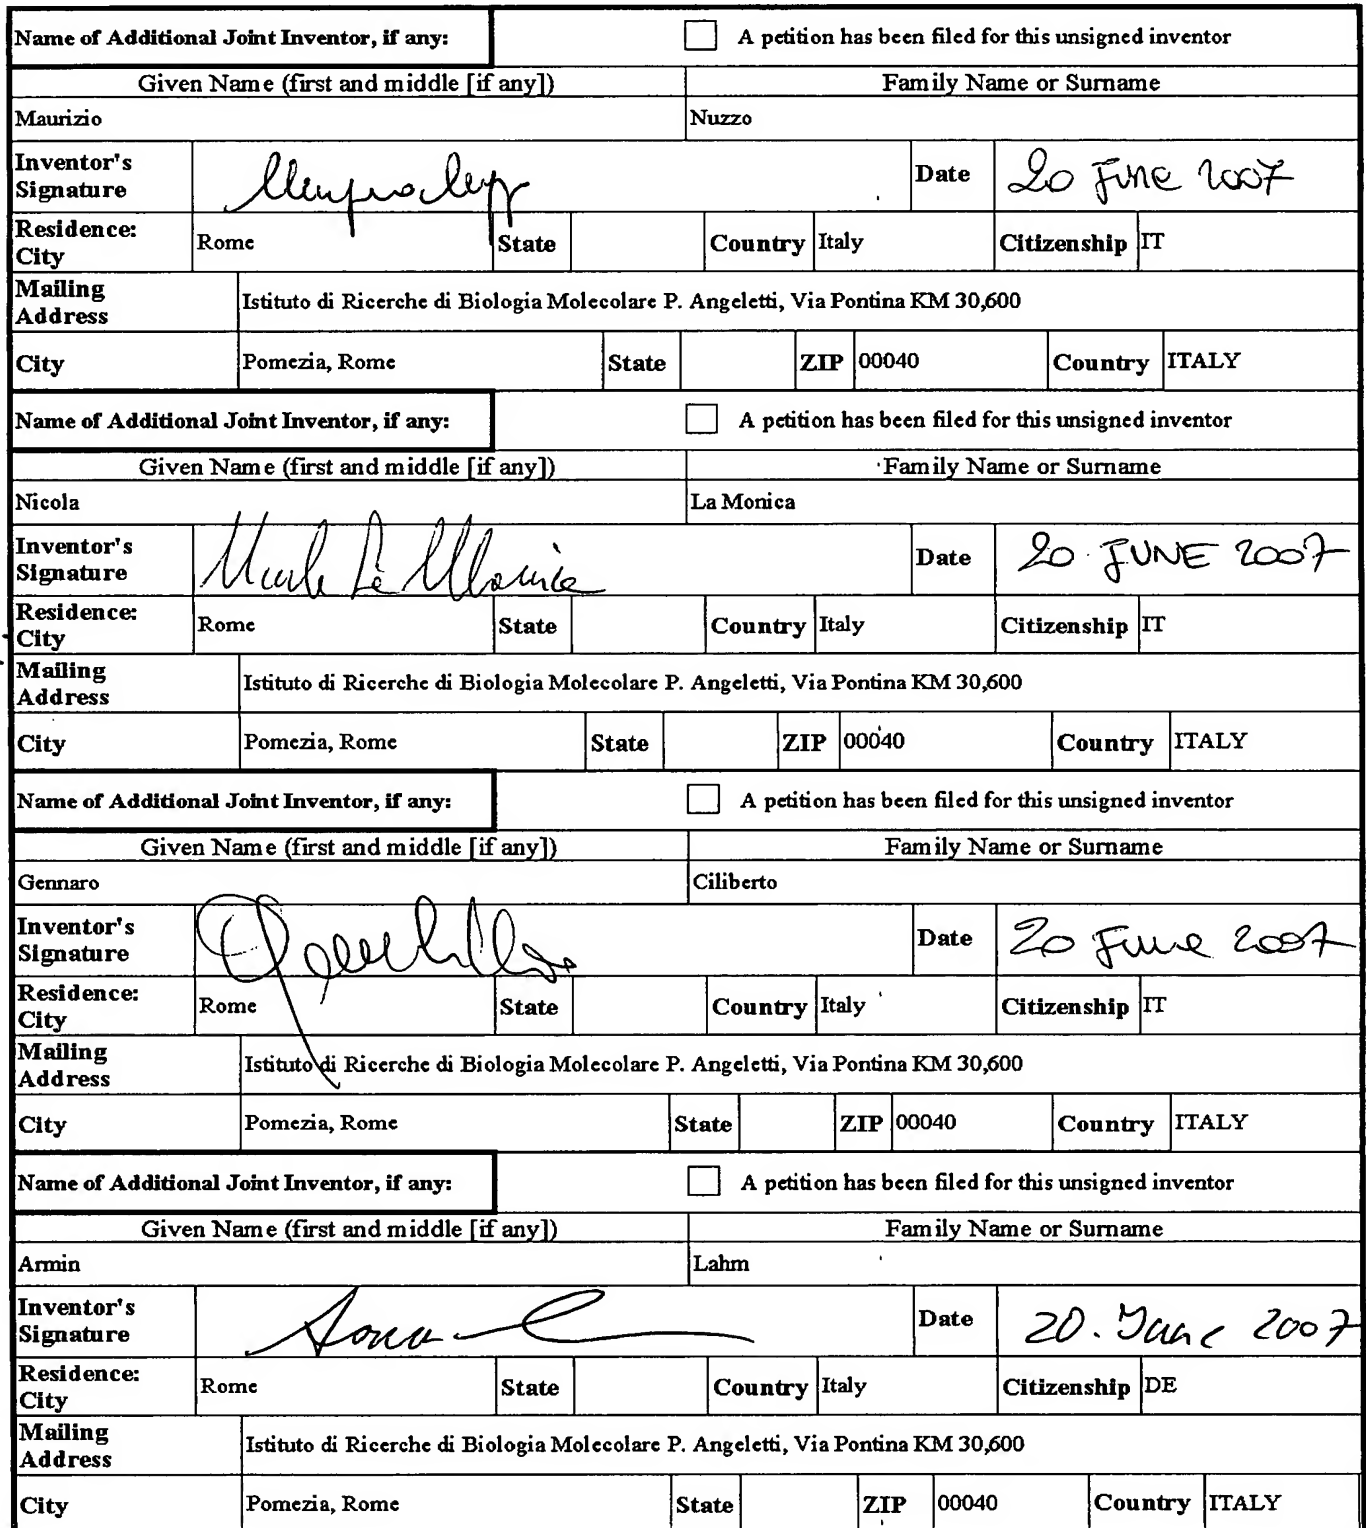 Name of Additional Joint Inventor, if any: A petition has been filed for this unsigned inventor
Given Name (first and middle [if any]) Family Name or Surname
Maurizio Nuzzo
Inventor's Signature Date 20 June 2007
Residence: City Rome State Country Italy Citizenship IT
Mailing Address Istituto di Ricerche di Biologia Molecolare P. Angeletti, Via Pontina KM 30,600
City Pomezia, Rome State ZIP 00040 Country ITALY
Name of Additional Joint Inventor, if any: A petition has been filed for this unsigned inventor
Given Name (first and middle [if any]) Family Name or Surname
Nicola La Monica
Inventor's Signature Nicola La Monica Date 20 JUNE 2007
Residence: City Rome State Country Italy Citizenship IT
Mailing Address Istituto di Ricerche di Biologia Molecolare P. Angeletti, Via Pontina KM 30,600
City Pomezia, Rome State ZIP 00040 Country ITALY
Name of Additional Joint Inventor, if any: A petition has been filed for this unsigned inventor
Given Name (first and middle [if any]) Family Name or Surname
Gennaro Ciliberto
Inventor's Signature Date 20 June 2007
Residence: City Rome State Country Italy Citizenship IT
Mailing Address Istituto di Ricerche di Biologia Molecolare P. Angeletti, Via Pontina KM 30,600
City Pomezia, Rome State ZIP 00040 Country ITALY
Name of Additional Joint Inventor, if any: A petition has been filed for this unsigned inventor
Given Name (first and middle [if any]) Family Name or Surname
Armin Lahm
Inventor's Signature Date 20. June 2007
Residence: City Rome State Country Italy Citizenship DE
Mailing Address Istituto di Ricerche di Biologia Molecolare P. Angeletti, Via Pontina KM 30,600
City Pomezia, Rome State ZIP 00040 Country ITALY